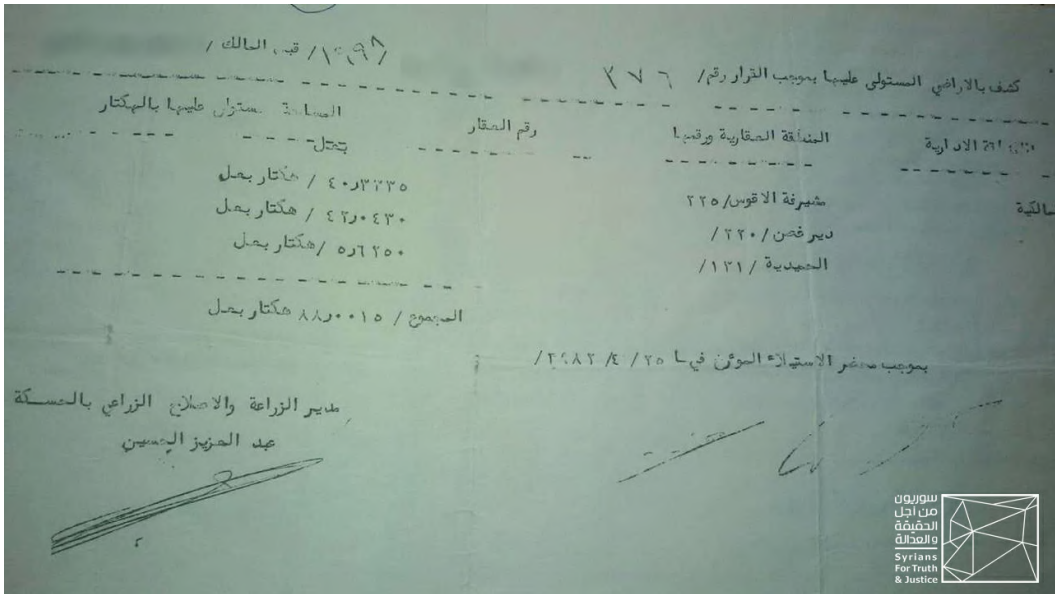 كشف بالاراضي المستولى عليها بموجب القرار رقم/ ٣٧٦ /١٩٩٨/ قبل المالك /
الادارية المنطقة العقارية ورقمها رقم العقار المساحة مستولى عليها بالهكتار
بعل
مالكية شيرفة الاقوس/ ٢٢٥ ٤٠٫٣٣٣٥ / هكتار بعل
دير غصن / ٢٢٠/ ٤٢٫٠٤٣٠ / هكتار بعل
الحميدية /١٣١/ ٥٫٦٢٥٠ /هكتار بعل
المجموع / ٨٨٫٠٠١٥ هكتار بعل
بموجب محضر الاستيلاء المؤرخ في ٢٥/ ٤/
مدير الزراعة والاصلاح الزراعي بالحسكة
عبد العزيز الحسين
سوريون
من أجل
الحقيقة
والعدالة
Syrians
For Truth
& Justice